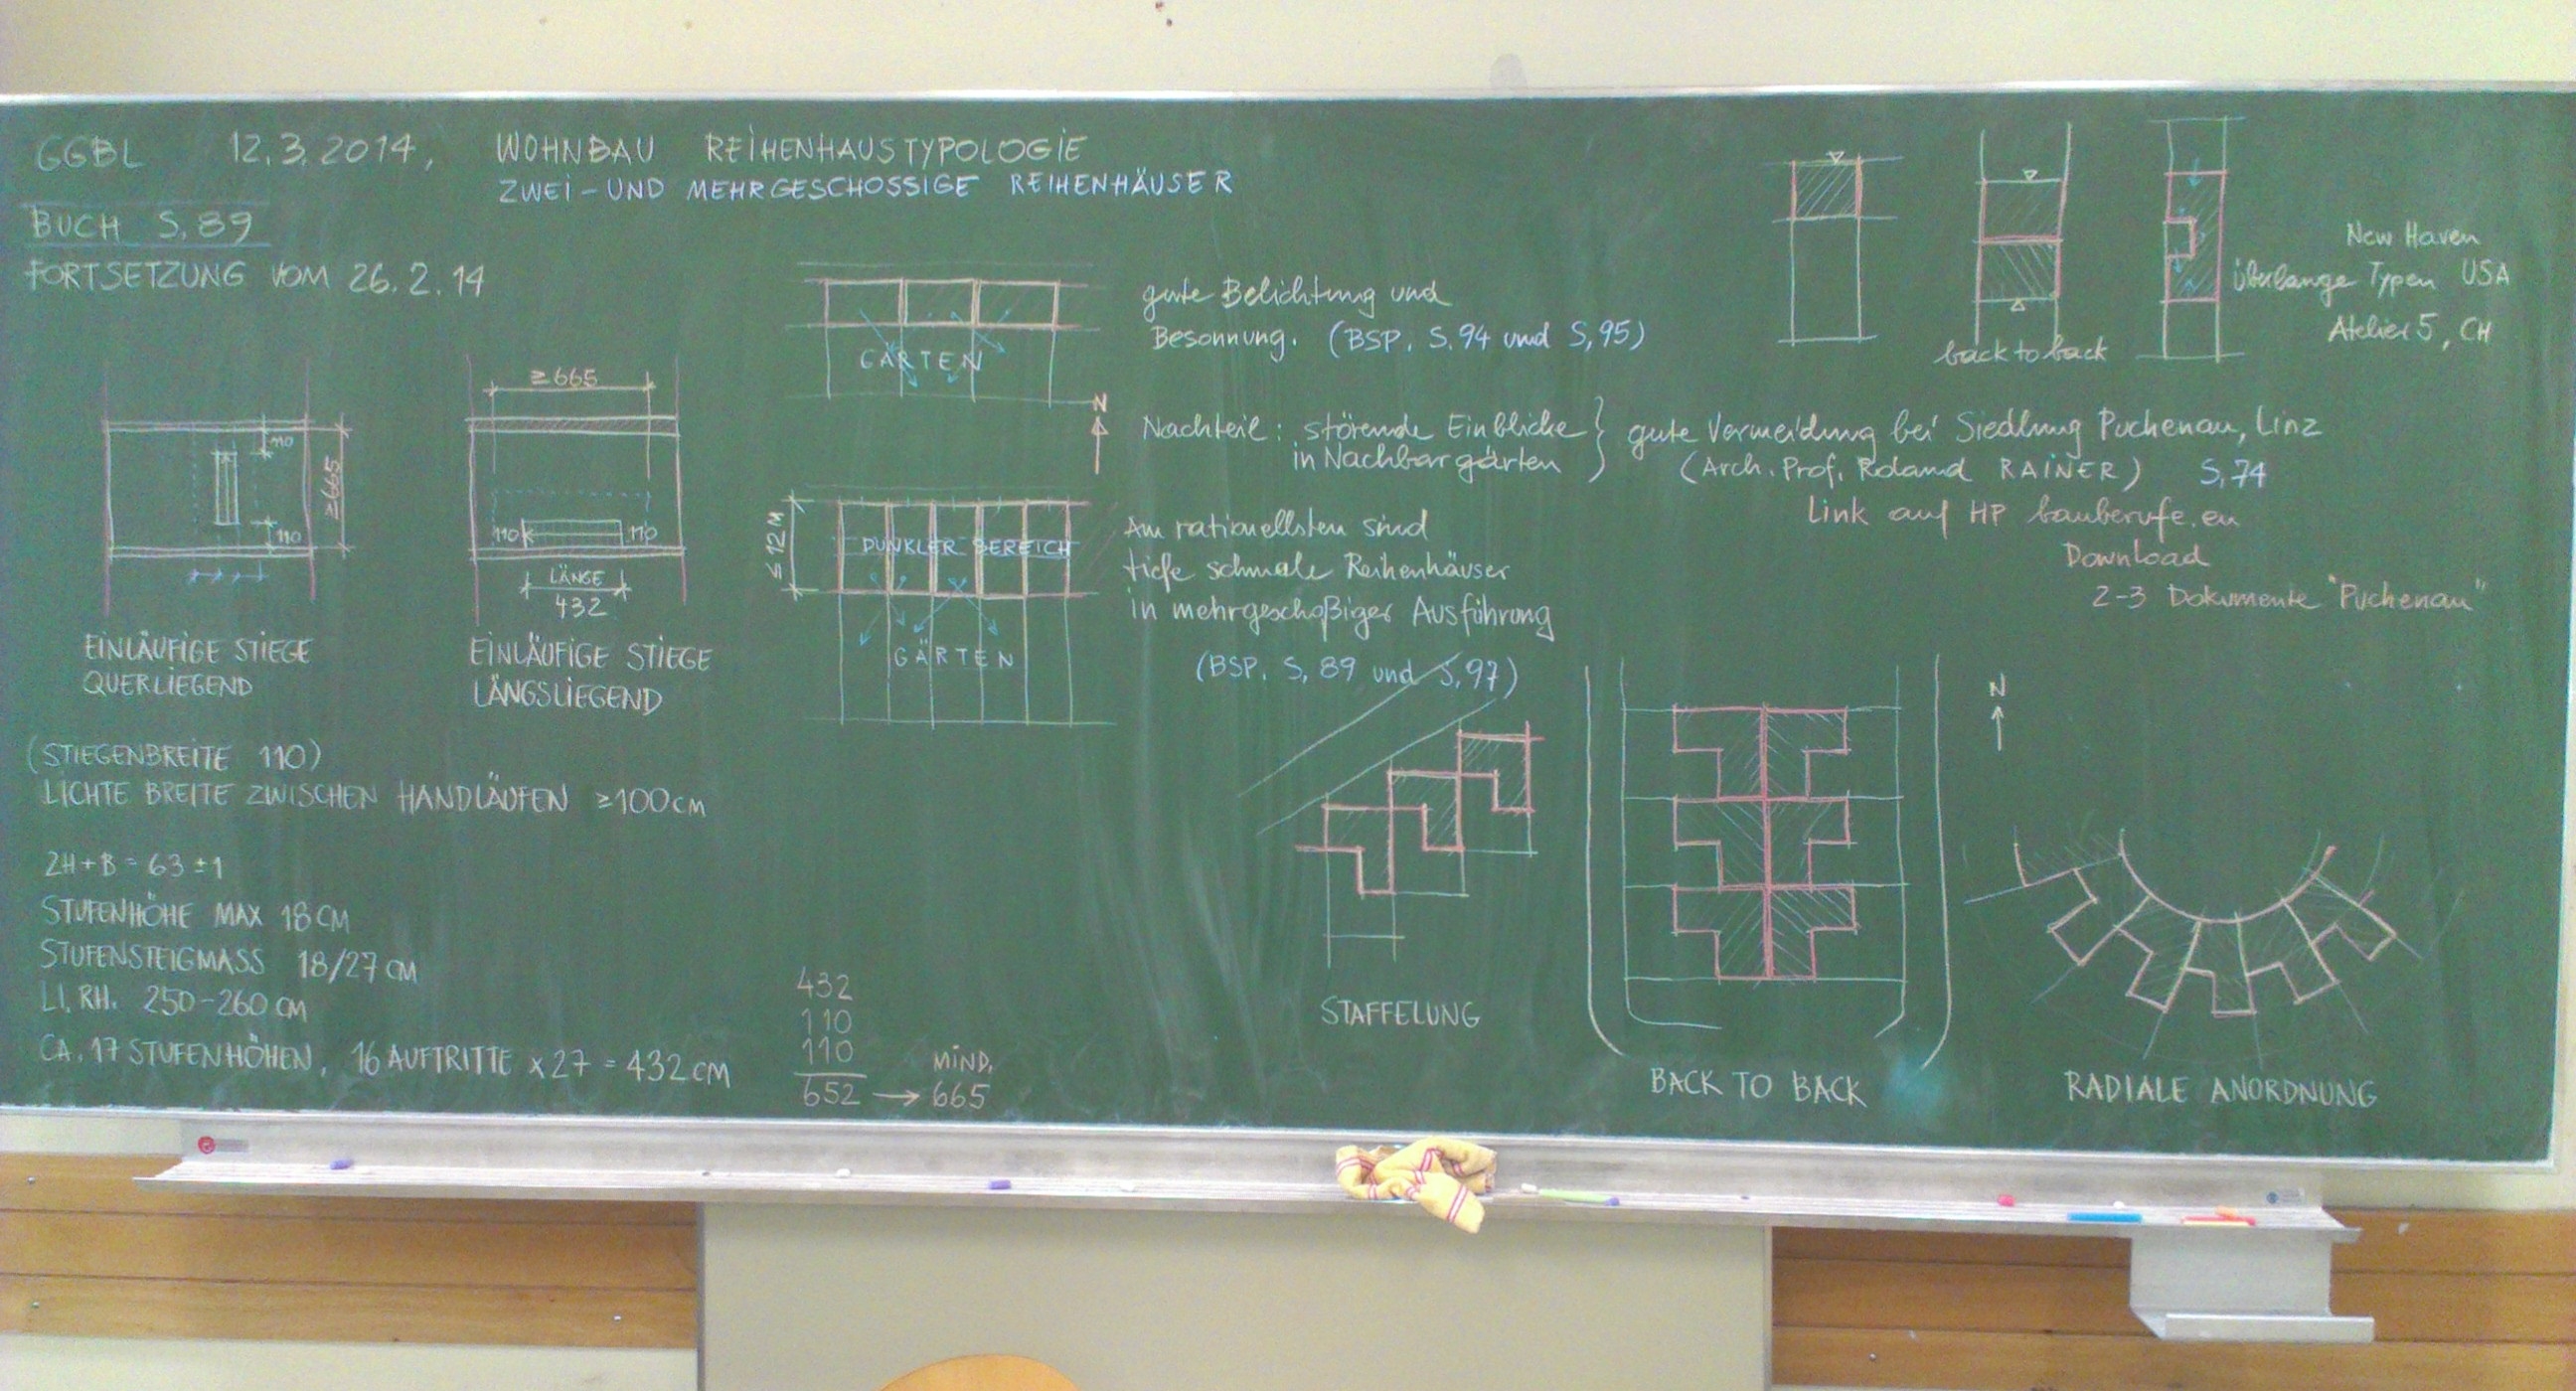 GGBL 12.3.2014, WOHNBAU REIHENHAUSTYPOLOGIE
ZWEI-UND MEHRGESCHOSSIGE REIHENHÄUSER
BUCH S. 89
FORTSETZUNG VOM 26.2.14
110
≥665
110
EINLÄUFIGE STIEGE
QUERLIEGEND
≥665
110
110
LÄNGE
432
EINLÄUFIGE STIEGE
LÄNGSLIEGEND
(STIEGENBREITE 110)
LICHTE BREITE ZWISCHEN HANDLÄUFEN ≥100CM
2H+B=63±1
STUFENHÖHE MAX 18CM
STUFENSTEIGMASS 18/27CM
LI. RH. 250-260CM
CA. 17 STUFENHÖHEN, 16 AUFTRITTE x27=432CM
432
110
110
652 → MIND. 665
GÄRTEN
N
gute Belichtung und
Besonnung. (BSP. S. 94 und S, 95)
Nachteil: störende Einblicke
in Nachbargärten
gute Vermeidung bei Siedlung Puchenau, Linz
(Arch. Prof. Roland RAINER) S, 74
Link auf HP bauberufe.eu
Download
2-3 Dokumente "Puchenau"
≤12M
DUNKLER BEREICH
GÄRTEN
Am rationellsten sind
tiefe schmale Reihenhäuser
in mehrgeschoßiger Ausführung
(BSP. S, 89 und S, 97)
back to back
New Haven
überlange Typen USA
Atelier 5, CH
STAFFELUNG
BACK TO BACK
N
RADIALE ANORDNUNG